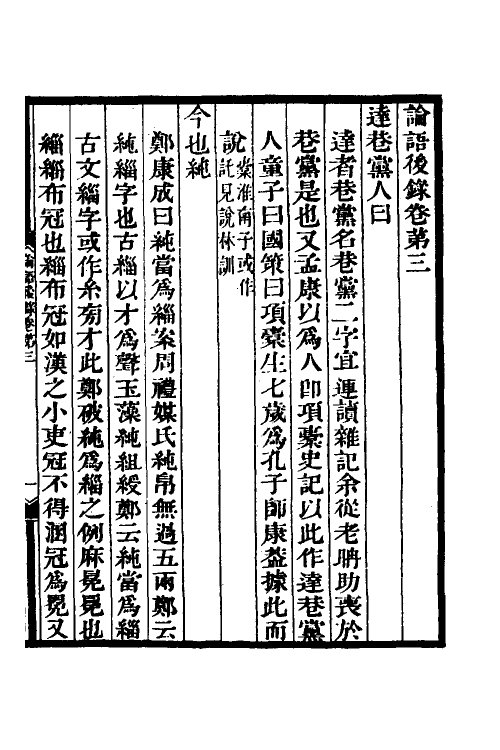 論語後錄卷第三
達巷黨人曰
達者巷黨名巷黨二字宜連讀雜記余從老聃助喪於
巷黨是也又孟康以爲人卽項橐史記以此作達巷黨
人童子曰國策曰項橐生七歲爲孔子師康葢據此而
說案淮南子或作託見說林訓
今也純
鄭康成曰純當爲緇案周禮媒氏純帛無過五兩鄭云
純緇字也古緇以才爲聲玉藻純組綬鄭云純當爲緇
古文緇字或作糸旁才此鄭破純爲緇之例麻冕冕也
緇緇布冠也緇布冠如漢之小吏冠不得溷冠爲冕又
論語後錄卷第三
一